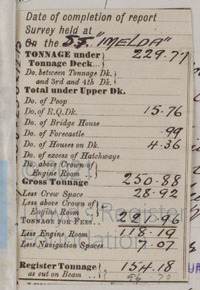 Date of completion of report
Survey held at
On the S.S. "IMELDA"
TONNAGE under } 229.77
Tonnage Deck...
Do. between Tonnage Dk. }
and 3rd and 4th Dk.
Total under Upper Dk.
Do. of Poop
Do. of R.Q. Dk. 15.76
Do. of Bridge House
Do. of Forecastle .99
Do. of Houses on Dk. 4.36
Do. of excess of Hatchways
Do. above Crown of }
Engine Room
Gross Tonnage 250.88
Less Crew Space 28.92
Less above Crown of }
Engine Room
TONNAGE FOR FEES 221.96
Less Engine Room 118.19
Less Navigation Spaces 7.07
Register Tonnage }
as cut on Beam 154.18